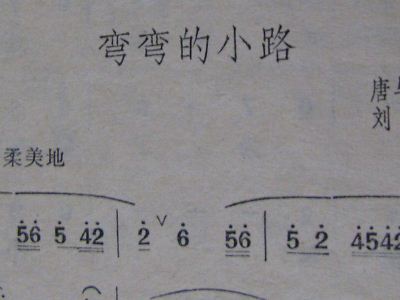 弯弯的小路
唐
刘
柔美地
56 5 42 | 2 ∨ 6 56 | 5 2 4542